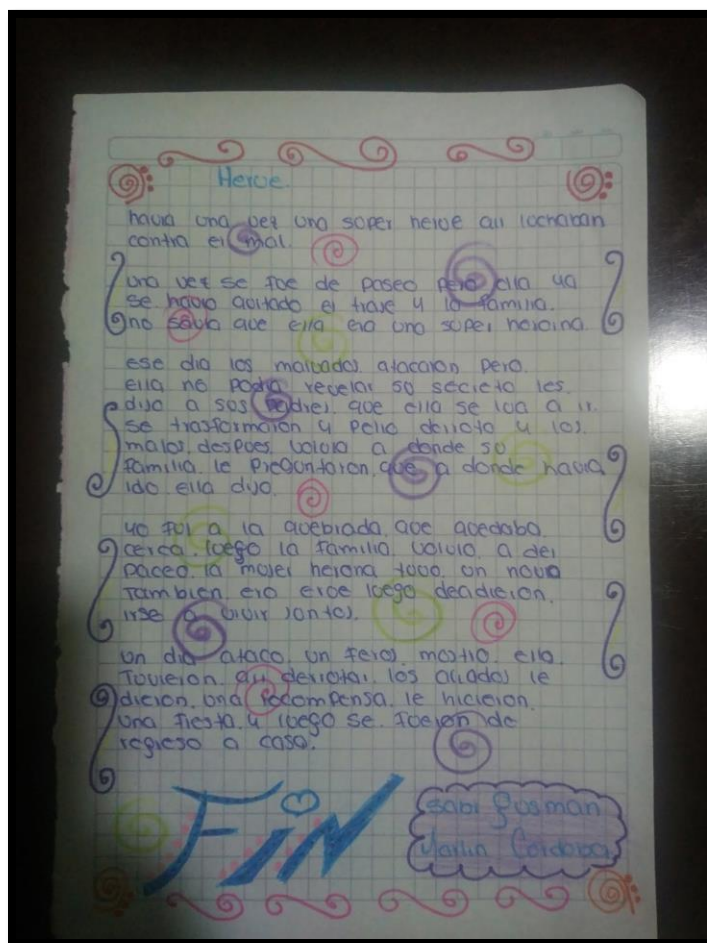 Heroe.
havia una vez una soper heroe qu lochaban
contra el mal.
una vez se foe de paseo pero ella ya
se havia qoitado el traje y la familia.
no savia que ella era una soper heroina
ese dia los malvados atacaron pero.
ella no podia revelar so secreto les.
dijo a sos padres que ella se iva a ir.
se trasformaron y pelio derroto y los.
malos. despoes. volvio a donde so
familia. le pregontaron. que a donde havia
ido ella dijo.
yo foi a la qoebrada. qoe qoedaba.
cerca. loego la familia. volvio. a del
paceo. la mojer herona tovo. on novio
tambien. era eroe loego deadieron.
irse a vivir jontos.
on dia ataco on feros. mostro. ella.
tovieron. qu derrotar. los aliados le
dieron. ona recompensa. le hicieron.
ona fiesta. y loego se. foeron de
regreso a casa.
FiN
sabi gosman
Yarlin Cordoba